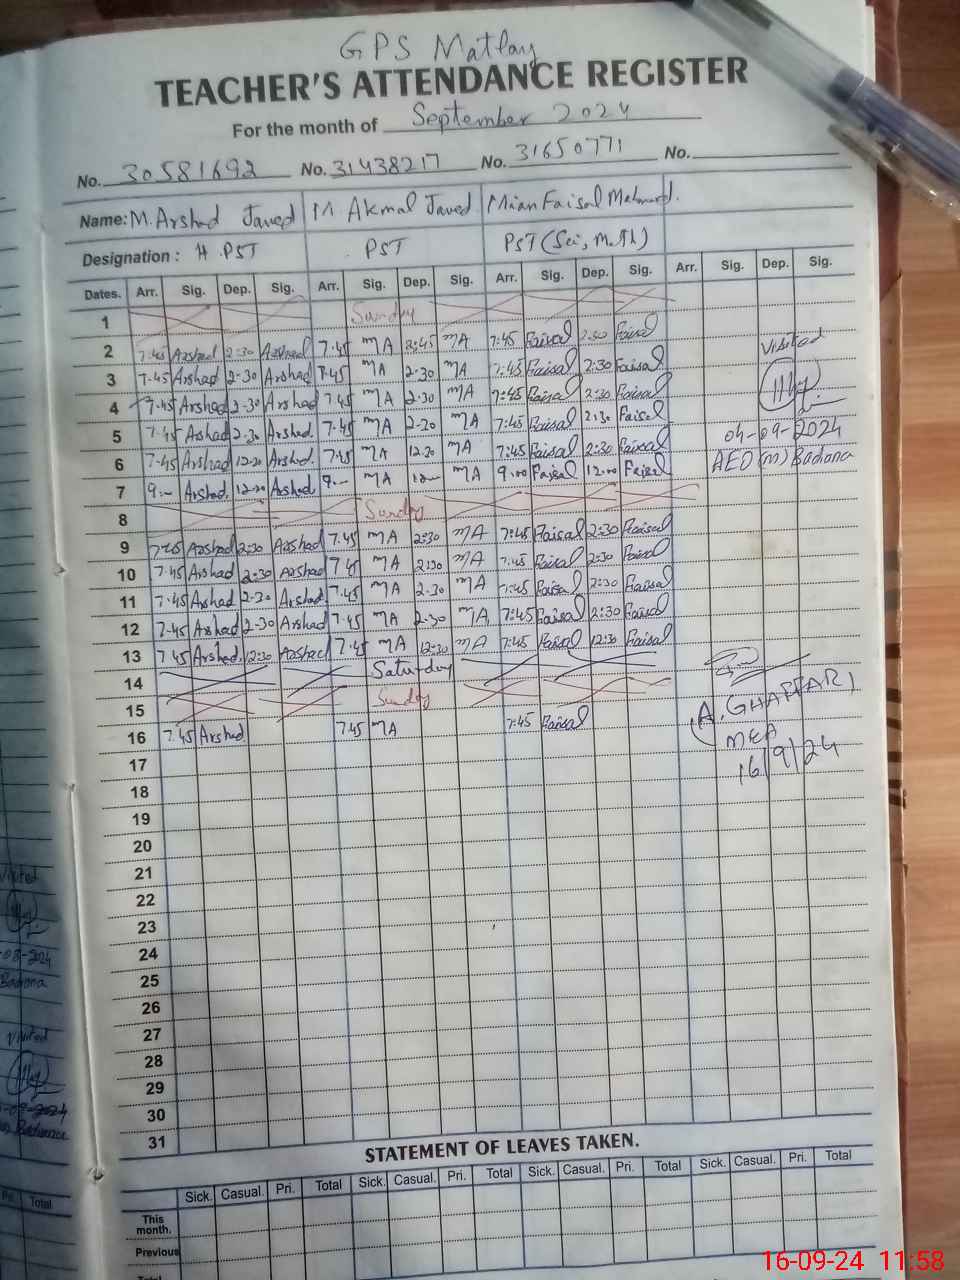 GPS Matlay
TEACHER'S ATTENDANCE REGISTER
For the month of September 2024
No. 30581692 No. 31438217 No. 31650771 No.
Name: M. Arshad Javed M. Akmal Javed Mian Faisal Mehmood.
Designation : H.PST PST PST (Sci, Math)
Dates. Arr. Sig. Dep. Sig. Arr. Sig. Dep. Sig. Arr. Sig. Dep. Sig. Arr. Sig. Dep. Sig.
1 Sunday
2 7.45 Arshad 2:30 Arshad 7.45 MA 2:45 MA 7:45 Faisal 2:30 Faisal
Visited
3 7.45 Arshad 2-30 Arshad 7.45 MA 2-30 MA 7:45 Faisal 2:30 Faisal
4 7.45 Arshad 2-30 Arshad 7.45 MA 2.30 MA 7:45 Faisal 2:30 Faisal
5 7.45 Arshad 2-30 Arshad. 7.45 MA 2-20 MA 7:45 Faisal 2:30 Faisal
04-09-2024
6 7-45 Arshad 12-30 Arshad. 7.45 MA 12.30 MA 7:45 Faisal 2:30 Faisal
AEO (M) Badiana
7 9.— Arshad. 12-30 Arshad. 9— MA 12— MA 9:00 Faisal 12:00 Faisal
8 Sunday
9 7.45 Arshad 2:30 Arshad 7.45 MA 2:30 MA 7:45 Faisal 2:30 Faisal
10 7.45 Arshad 2:30 Arshad 7.45 MA 2:30 MA 7:45 Faisal 2:30 Faisal
11 7.45 Arshad 2-30 Arshad 7.45 MA 2.30 MA 7:45 Faisal 2:30 Faisal
12 7.45 Arshad 2-30 Arshad 7.45 MA 2.30 MA 7:45 Faisal 2:30 Faisal
13 7.45 Arshad. 12:30 Arshad 7.45 MA 12:30 MA 7:45 Faisal 12:30 Faisal
14 Saturday
15 Sunday
A. GHAFFARI
16 7.45 Arshad 7.45 MA 7:45 Faisal
MEA
16/9/24
17
18
19
20
21
22
23
24
25
26
27
28
29
30
31
STATEMENT OF LEAVES TAKEN.
Sick. Casual. Pri. Total Sick. Casual. Pri. Total Sick. Casual. Pri. Total Sick. Casual. Pri. Total
This month.
Previous
Total
Visited
-08-2024
Badiana
Visited
Badiana
Pri. Total
16-09-24 11:58